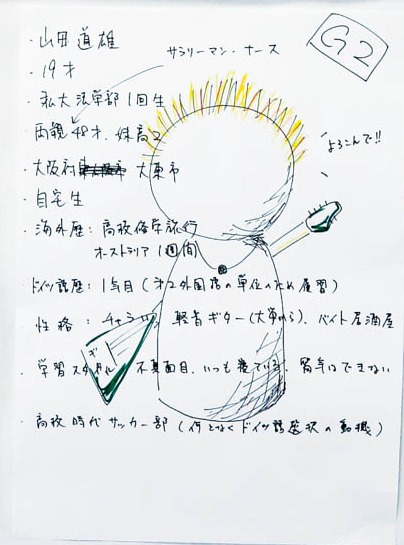 G2
・山田道雄
サラリーマン・ナース
・19才
・私大法学部1回生
・両親48才、妹高2
よろこんで!!
・大阪府 大東市
・自宅生
・海外歴：高校修学旅行
オーストラリア1週間
・ドイツ語歴：1年目（第2外国語の単位のため履習）
・性格：チャラい 軽音ギター（大学から）、バイト居酒屋
ギ
・学習スタイル 不真面目、いつも寝ている、留年はできない
・高校時代サッカー部（何となくドイツ語選択の動機）